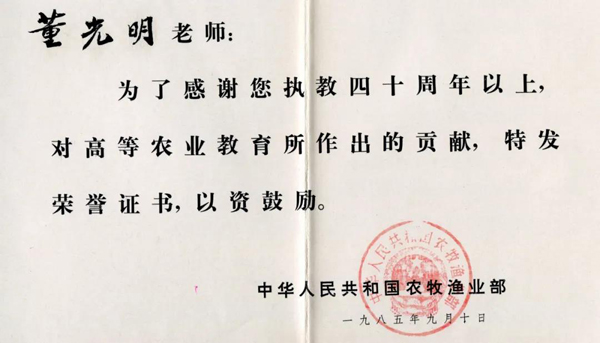 董光明老师:
为了感谢您执教四十周年以上,
对高等农业教育所作出的贡献, 特发
荣誉证书, 以资鼓励。
中华人民共和国农牧渔业部
中华人民共和国农牧渔业部
一九八五年九月十日